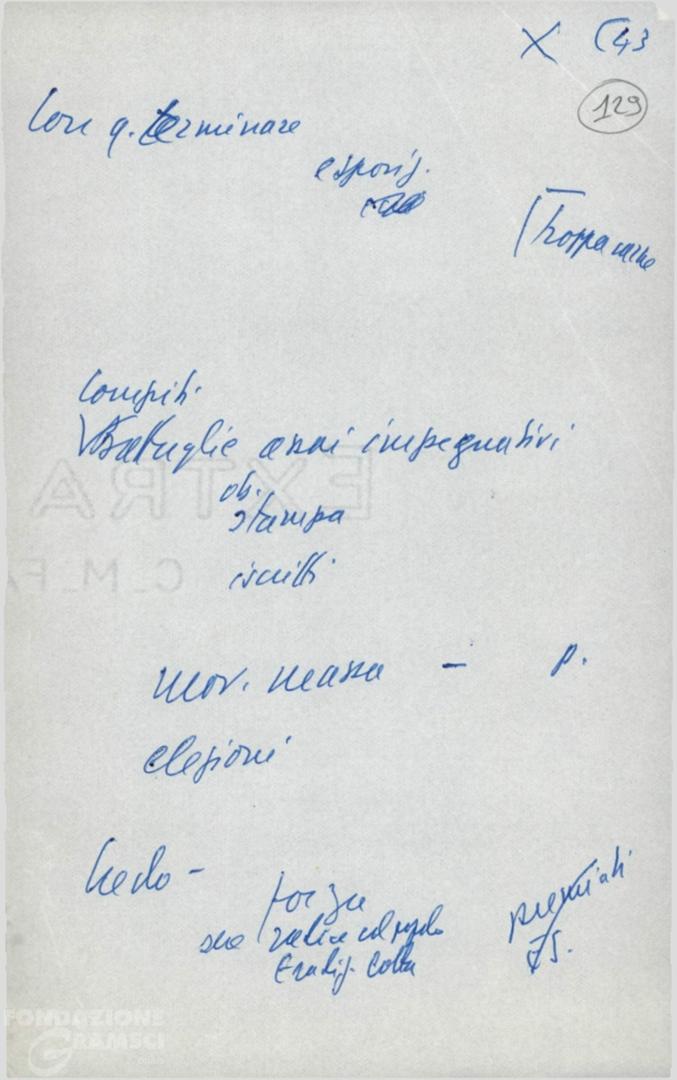 X (43
129
Con q. terminare
esposiz.
Troppa carne
Compiti
Battaglie assai impegnative
ob.
stampa
iscritti
EXTRA
mov. massa - p.
elezioni
Credo -
forza
sua radice col popolo
Tradiz. Colla
premiati
75.
FONDAZIONE
GRAMSCI